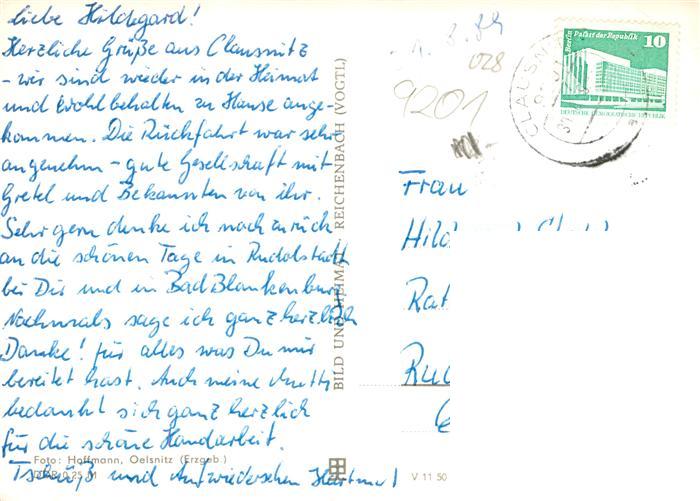 liebe Hildegard!
Herzliche Grüße aus Clausnitz
- wir sind wieder in der Heimat
und wohlbehalten zu Hause ange-
kommen. Die Rückfahrt war sehr
angenehm - gute Gesellschaft mit
Gretel und Bekannten von ihr.
Sehr gern denke ich noch zurück
an die schönen Tage in Rudolstadt
bei Dir und in Bad Blankenburg
Nochmals sage ich ganz herzlich
Danke! für alles was Du mir
bereitet hast. Auch meine Mutti
bedankt sich ganz herzlich
für die schöne Handarbeit.
Tschüß und Aufwiedersehen Hartmut
Foto: Hoffmann, Oelsnitz (Erzgeb.)
V 11 50
BILD UND HEIMAT REICHENBACH (VOGTL)
028
9201
CLAUSN
Berlin Palast der Republik
10
DEUTSCHE DEMOKRATISCHE REPUBLIK
Frau
Hild
Rat
Rud